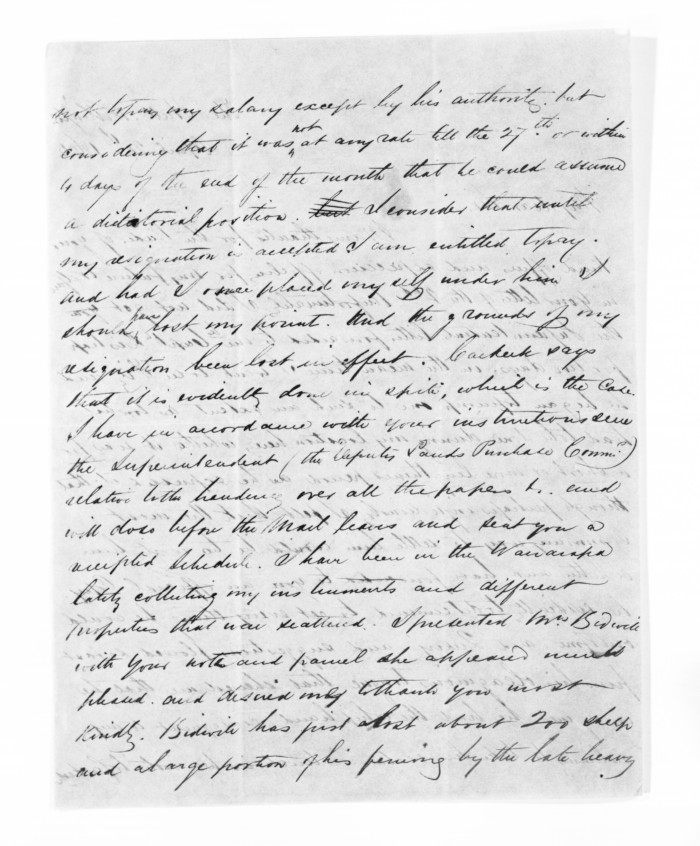 not to pay my salary except by his authority. but
considering that it was not at any rate till the 27th or within
4 days of the end of the month that he could assume
a dictatorial position. but I consider that until
my resignation is accepted I am entitled to pay.
and had I once placed myself under him I
should have lost my point. And the grounds of my
resignation been lost in effect. says
that it is evidently done in spite, which is the case.
I have in accordance with your instructions seen
the Superintendent (the Deputy Lands Purchase Commr)
relative to the handing over all the papers &c. and
will do so before the Mail leaves and send you a
receipted Schedule. I have been in the Wairarapa
lately collecting my instruments and different
properties that were scattered. I presented Mrs Bidwill
with your note and parcel she appeared much
pleased and desired me to thank you most
kindly. Bidwill has just lost about 200 sheep
and a large portion of his fencing by the late heavy